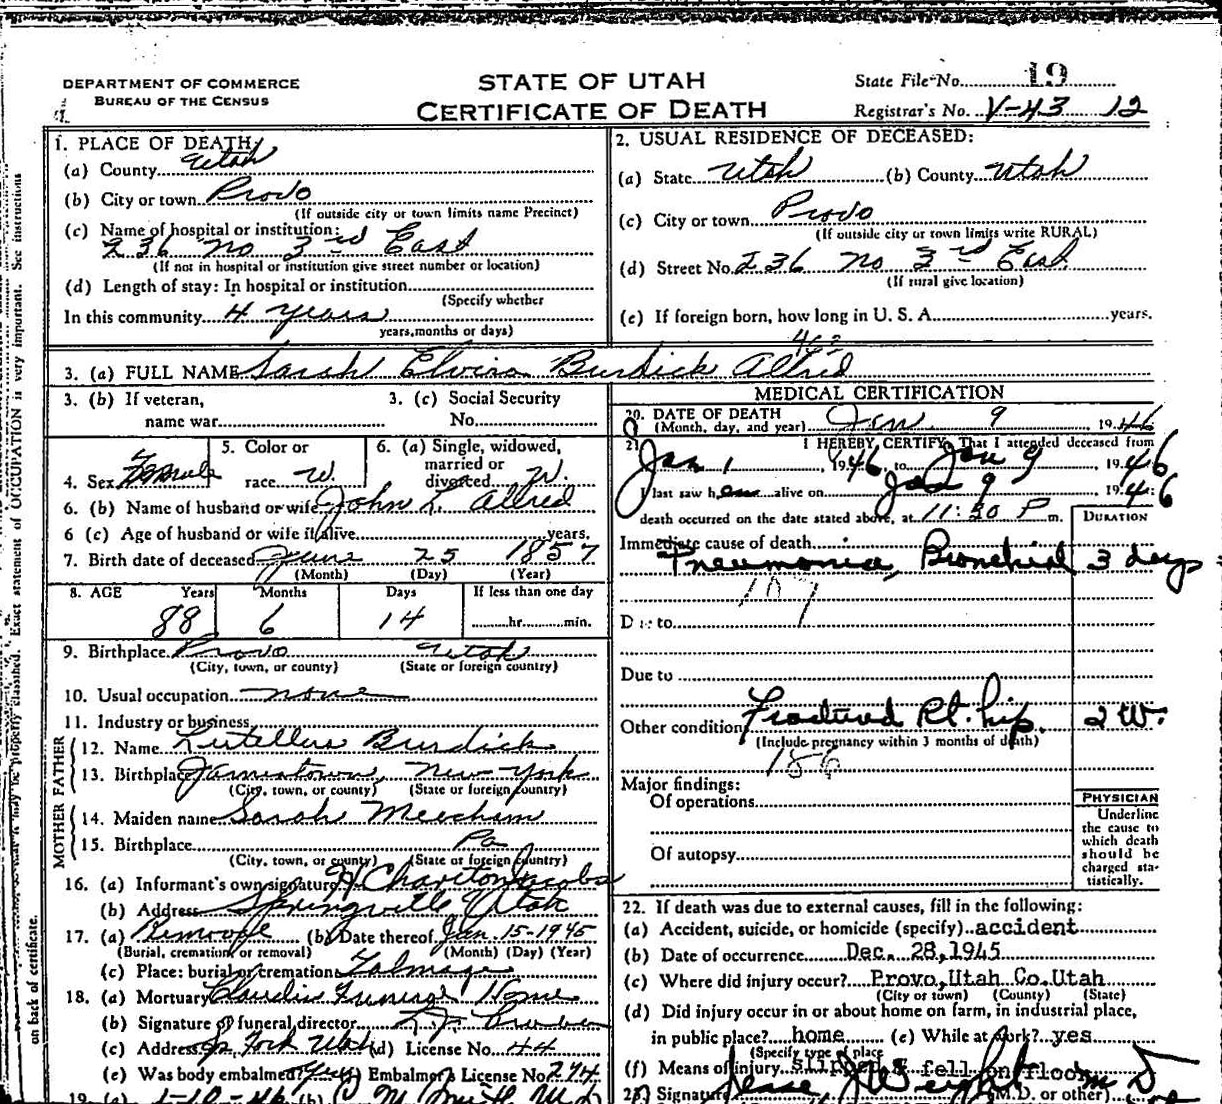 DEPARTMENT OF COMMERCE
BUREAU OF THE CENSUS
STATE OF UTAH
CERTIFICATE OF DEATH
State File No. 19
Registrar's No. V-43 12
1. PLACE OF DEATH
(a) County Utah
(b) City or town Provo
(If outside city or town limits name Precinct)
(c) Name of hospital or institution:
236 No 3rd East
(If not in hospital or institution give street number or location)
(d) Length of stay: In hospital or institution
(Specify whether
In this community 4 years
years, months or days)
2. USUAL RESIDENCE OF DECEASED:
(a) State Utah (b) County Utah
(c) City or town Provo
(If outside city or town limits write RURAL)
(d) Street No. 236 No 3rd East
(If rural give location)
(e) If foreign born, how long in U. S. A. years.
3. (a) FULL NAME Sarah Elvira Burdick Allred
3. (b) If veteran,
name war
3. (c) Social Security
No.
4. Sex Female
5. Color or
race W.
6. (a) Single, widowed,
married or
divorced W.
6. (b) Name of husband or wife John L. Allred
6 (c) Age of husband or wife if alive years.
7. Birth date of deceased June 25 1857
(Month) (Day) (Year)
8. AGE Years Months Days If less than one day
88 6 14 hr. min.
9. Birthplace Provo Utah
(City, town, or county) (State or foreign country)
10. Usual occupation none
11. Industry or business
FATHER
12. Name Burdick
13. Birthplace Jamestown, New York
(City, town, or county) (State or foreign country)
MOTHER
14. Maiden name Sarah Meecham
15. Birthplace Pa
(City, town, or county) (State or foreign country)
16. (a) Informant's own signature H Chariton Jacobs
(b) Address Springville Utah
17. (a) (b) Date thereof Jan. 15-1945
(Burial, cremation, or removal) (Month) (Day) (Year)
(c) Place: burial or cremation Talmage
18. (a) Mortuary Claudin Funeral Home
(b) Signature of funeral director
(c) Address Utah (d) License No. 44
(e) Was body embalmed? yes Embalmer's License No. 274
19. (a) 1-10-46 (b)
MEDICAL CERTIFICATION
20. DATE OF DEATH
(Month, day, and year) Jan 9 1946
21. I HEREBY CERTIFY, That I attended deceased from
Jan 1, 1946 to Jan 9 1946
I last saw her alive on Jan 9 1946
death occurred on the date stated above, at 11:30 P m.
DURATION
Immediate cause of death
Pneumonia, Bronchial 3 days
107
Due to
Due to
Other condition Fractured Rt. hip. 2 W.
(Include pregnancy within 3 months of death)
186
Major findings:
Of operations
Of autopsy
PHYSICIAN
Underline
the cause to
which death
should be
charged sta-
tistically.
22. If death was due to external causes, fill in the following:
(a) Accident, suicide, or homicide (specify) accident
(b) Date of occurrence Dec. 28, 1945
(c) Where did injury occur? Provo, Utah Co. Utah
(City or town) (County) (State)
(d) Did injury occur in or about home on farm, in industrial place,
in public place? home (e) While at work? yes
(Specify type of place
(f) Means of injury slipped & fell on floor
23. Signature Jesse J Weight M D
(M.D. or other)
on back of certificate.
may be properly classified. Exact statement of OCCUPATION is very important. See instructions